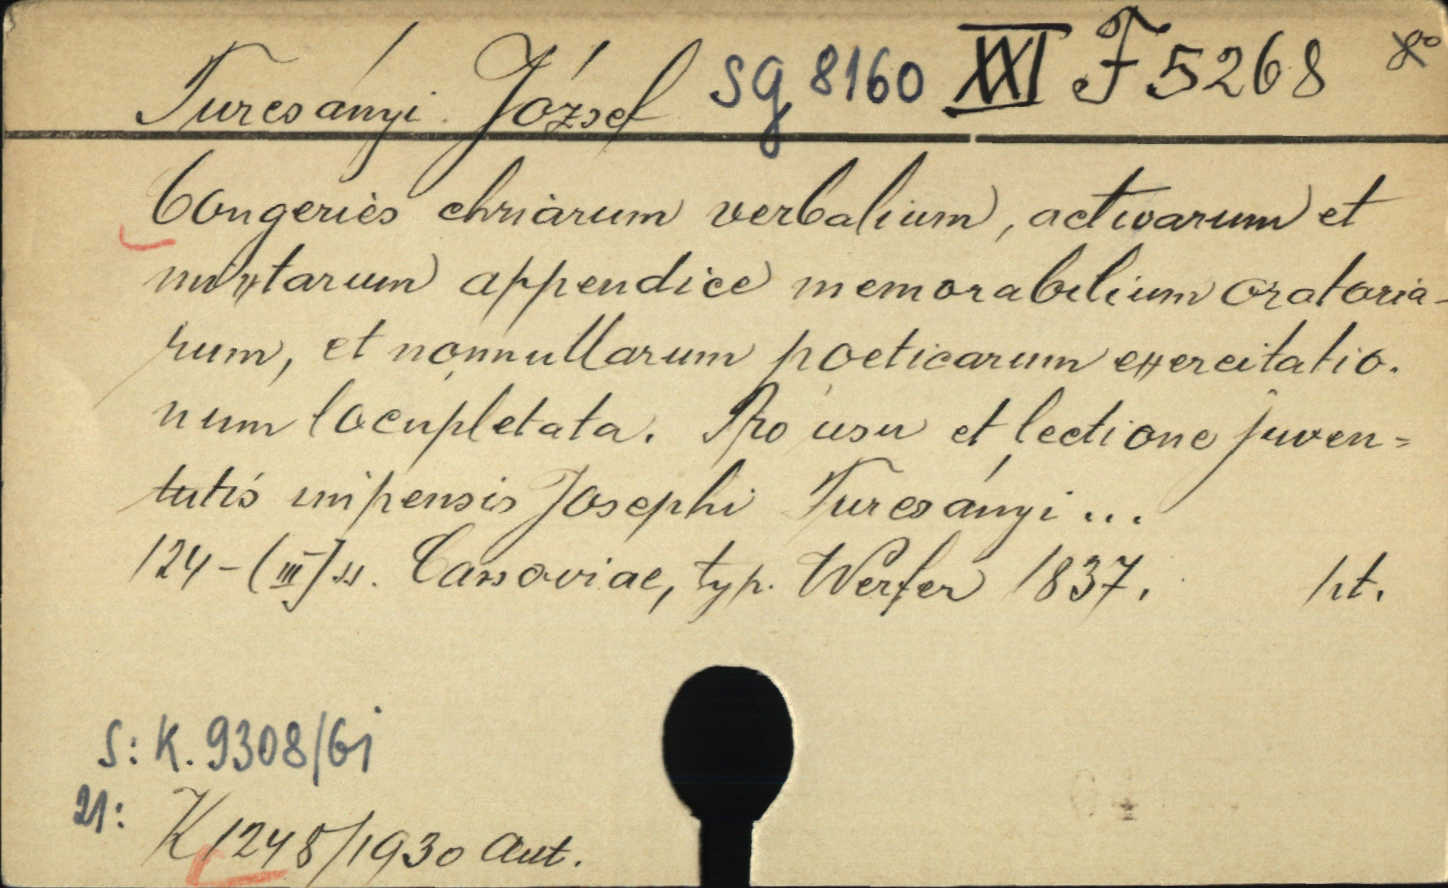 Turcsányi József Sg 8160 XXI F 5268 8°
Congeries chriarum verbalium, activarum et
mixtarum appendice memorabilium oratoria-
rum, et nonnullarum poeticarum exercitatio-
num locupletata. Pro usu et lectione juven=
tutis impensis Josephi Turcsányi ...
124-(III] s. Cassoviae, typ. Werfer 1837. pt.
S: K. 9308/Gj
21:
K 1248/1930 Aut.